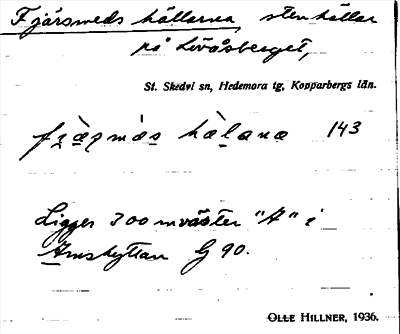 Fjärsmeds hällarna, stenhällar
på Lövåsberget,
St. Skedvi sn, Hedemora tg, Kopparbergs län.
143
Ligger 300 m väster "A" i
Arnshyttan G 90.
OLLE HILLNER, 1936.